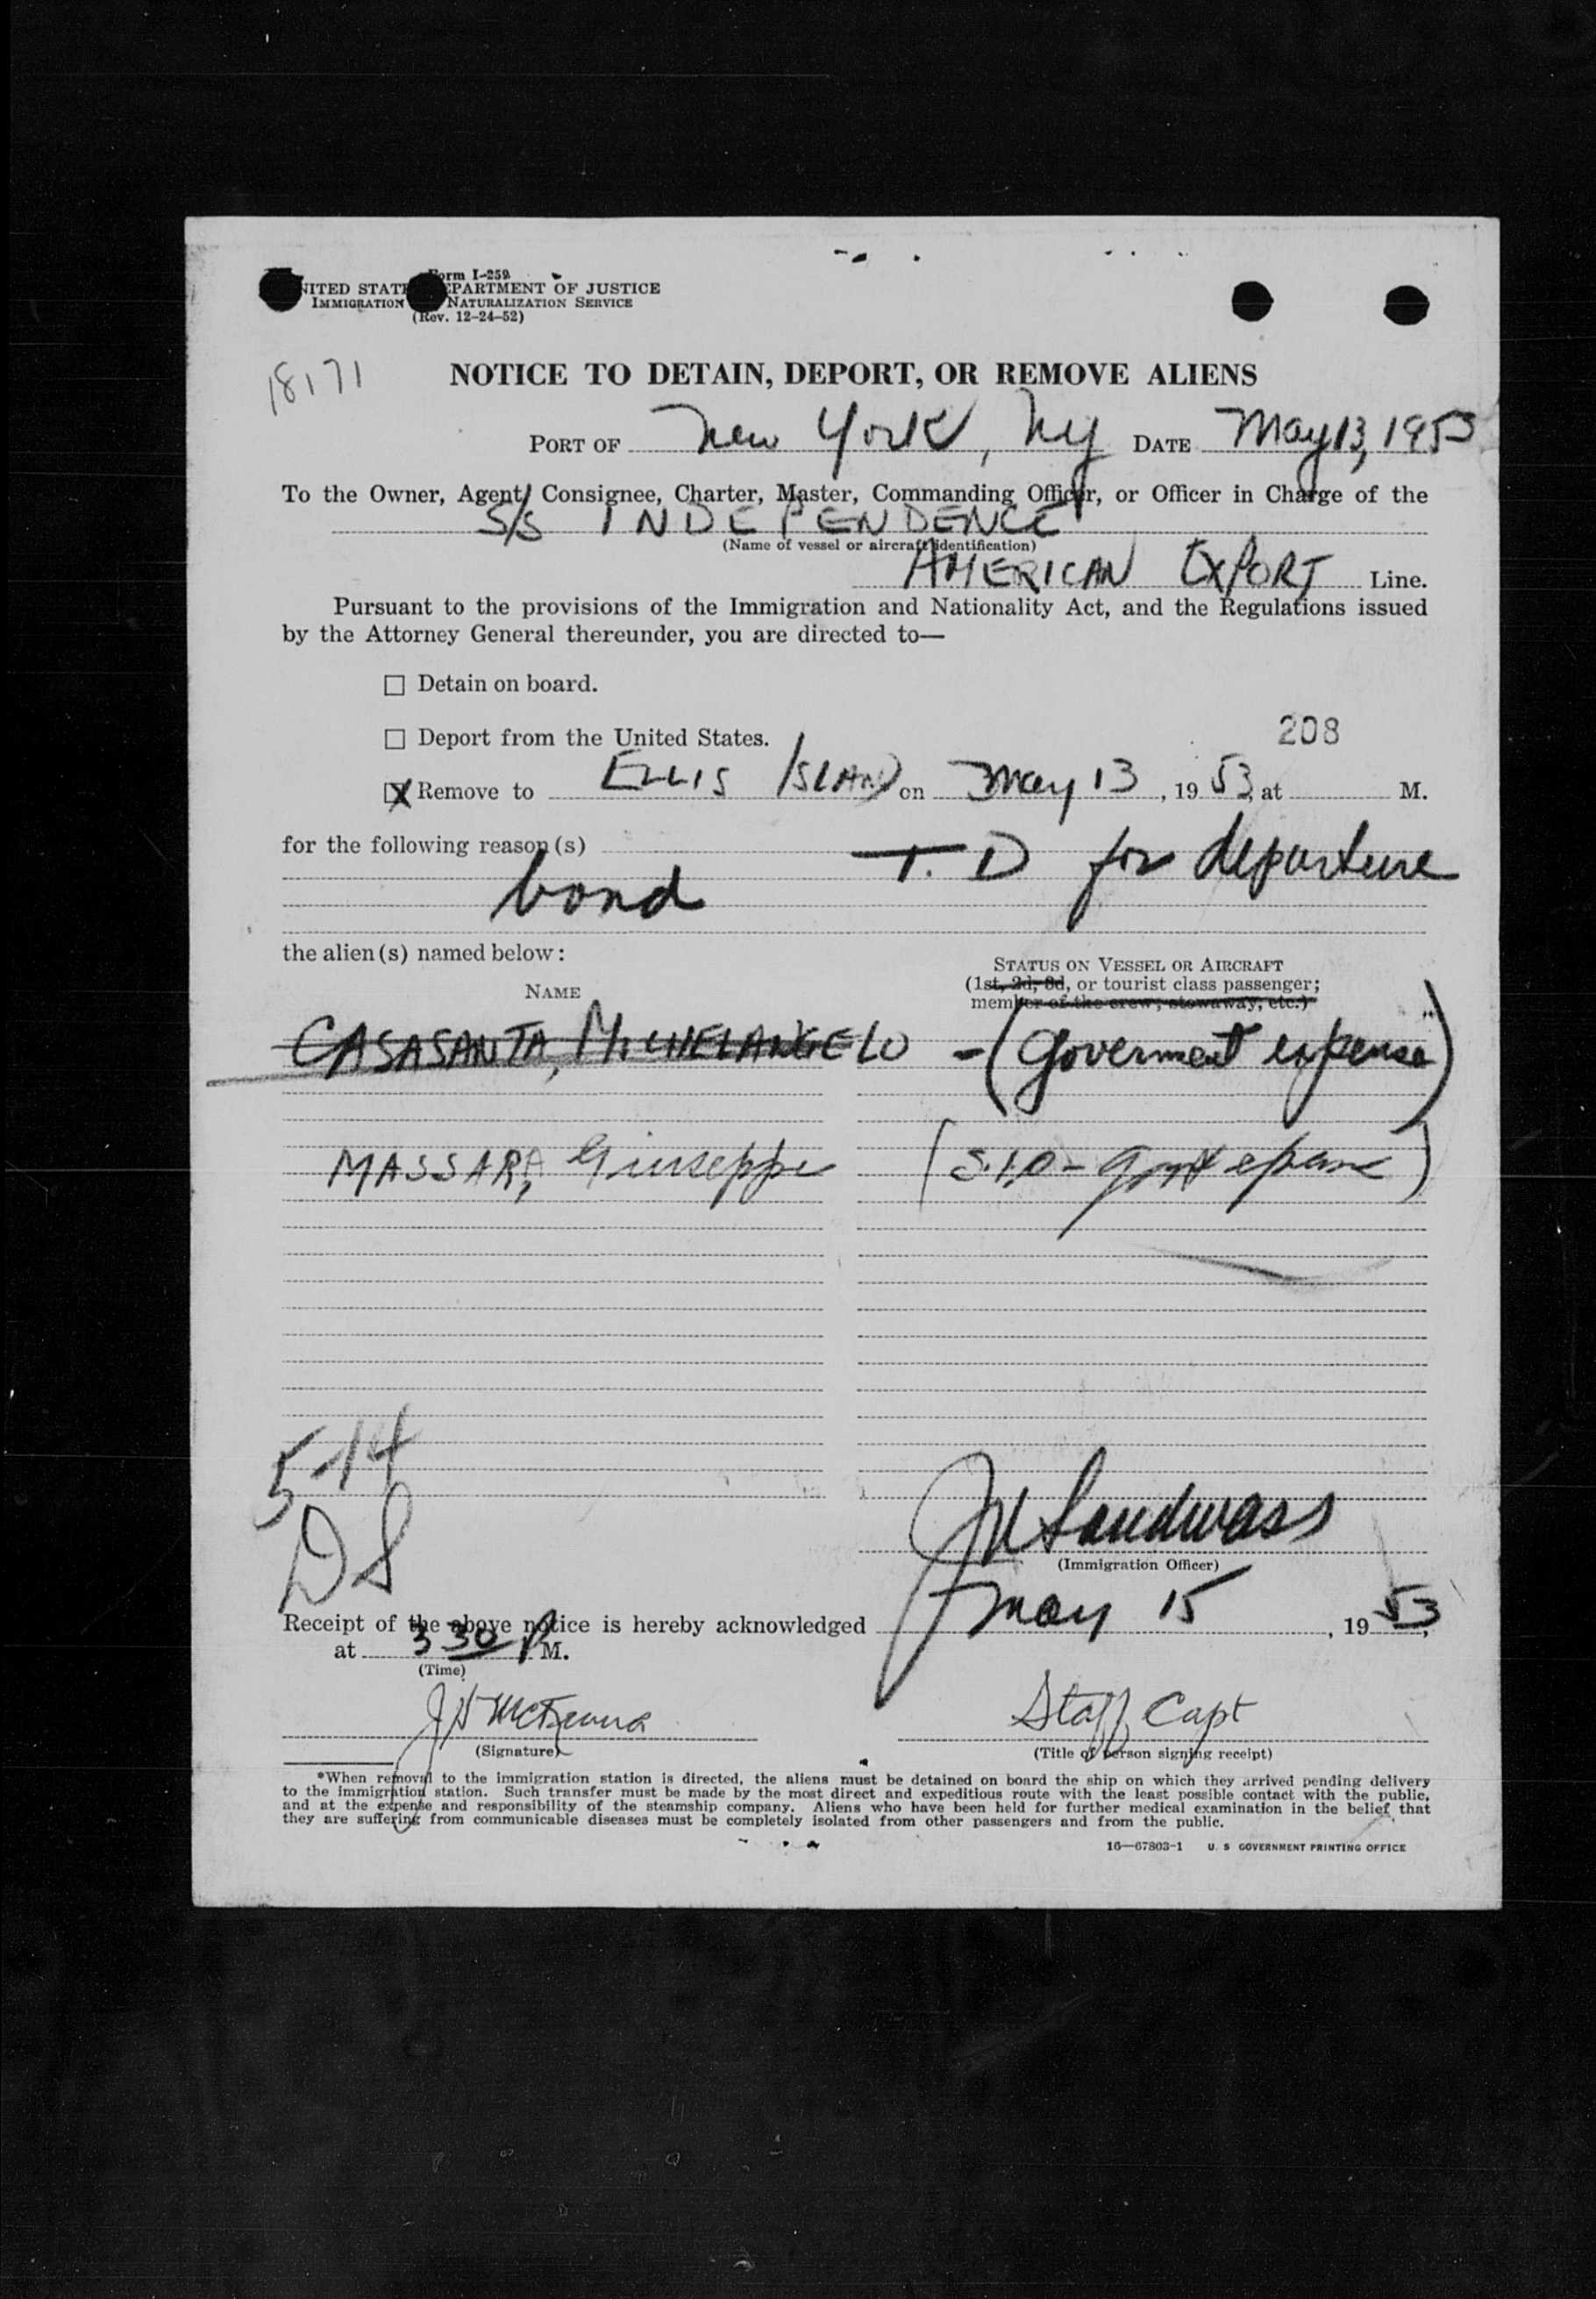 Form I-259
UNITED STATES DEPARTMENT OF JUSTICE
IMMIGRATION NATURALIZATION SERVICE
(Rev. 12-24-52)
18171
NOTICE TO DETAIN, DEPORT, OR REMOVE ALIENS
PORT OF New York, NY DATE May 13, 1953
To the Owner, Agent, Consignee, Charter, Master, Commanding Officer, or Officer in Charge of the
S/S INDEPENDENCE
(Name of vessel or aircraft identification)
AMERICAN EXPORT Line.
Pursuant to the provisions of the Immigration and Nationality Act, and the Regulations issued
by the Attorney General thereunder, you are directed to—
☐ Detain on board.
☐ Deport from the United States.
208
☒ Remove to ELLIS ISLAND on May 13, 1953, at M.
for the following reason(s)
T. D for departure
bond
the alien(s) named below:
NAME
STATUS ON VESSEL OR AIRCRAFT
(1st, 2d, 3d, or tourist class passenger;
member of the crew; stowaway, etc.)
CASASANTA, MICHELANGELO - (Goverment expense)
MASSARA, Giuseppe
5-14
DS
(Immigration Officer)
Receipt of the above notice is hereby acknowledged May 15, 1953,
at 3 30 P M.
(Time)
J H McKenna Staff Capt
(Signature) (Title of person signing receipt)
*When removal to the immigration station is directed, the aliens must be detained on board the ship on which they arrived pending delivery
to the immigration station. Such transfer must be made by the most direct and expeditious route with the least possible contact with the public,
and at the expense and responsibility of the steamship company. Aliens who have been held for further medical examination in the belief that
they are suffering from communicable diseases must be completely isolated from other passengers and from the public.
16—67803-1 U. S GOVERNMENT PRINTING OFFICE